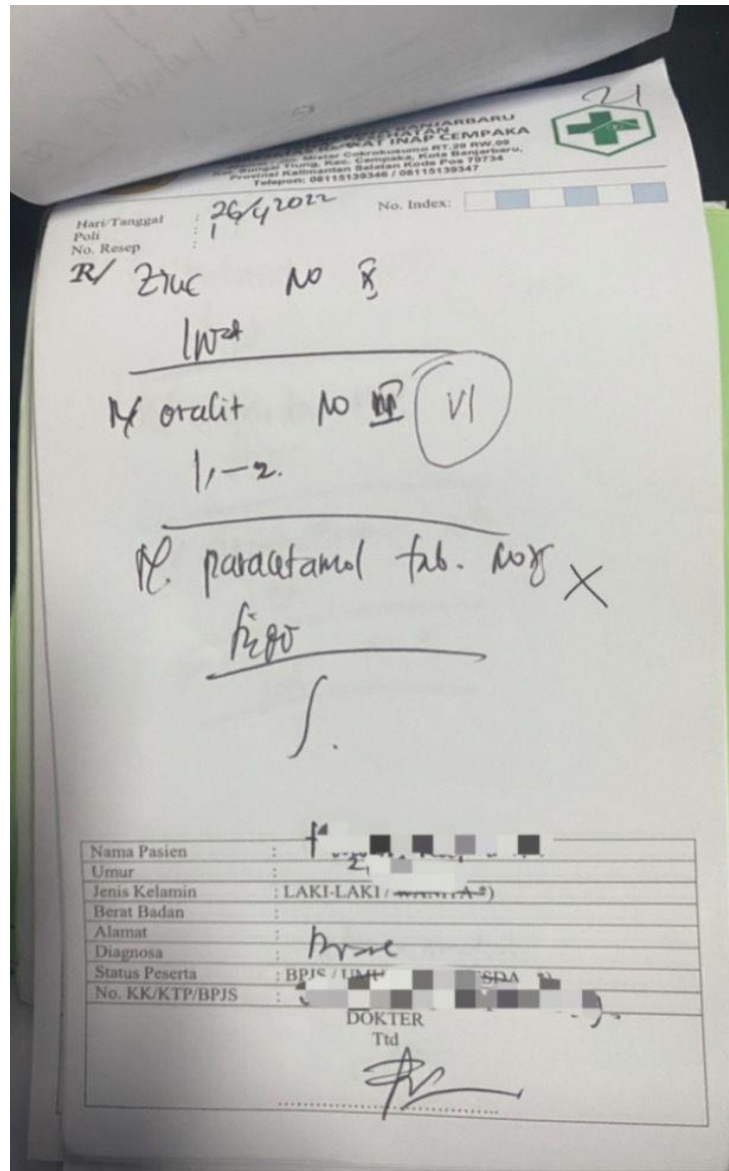 21
BANJARBARU
RAWAT INAP CEMPAKA
Mistar Cokrokusumo RT.29 RW.09
Kel. Sungai Tiung, Kec. Cempaka, Kota Banjarbaru,
Provinsi Kalimantan Selatan Kode Pos 70734
Telepon: 08115139346 / 08115139347
Hari/Tanggal : 26/4 2022 No. Index:
Poli : 1
No. Resep :
R/ Zinc No X
R/ oralit No VI
1,-2.
R/. paracetamol tab. No X X
Nama Pasien :
Umur :
Jenis Kelamin : LAKI-LAKI / WANITA *)
Berat Badan :
Alamat :
Diagnosa :
Status Peserta : BPJS /
No. KK/KTP/BPJS :
DOKTER
Ttd